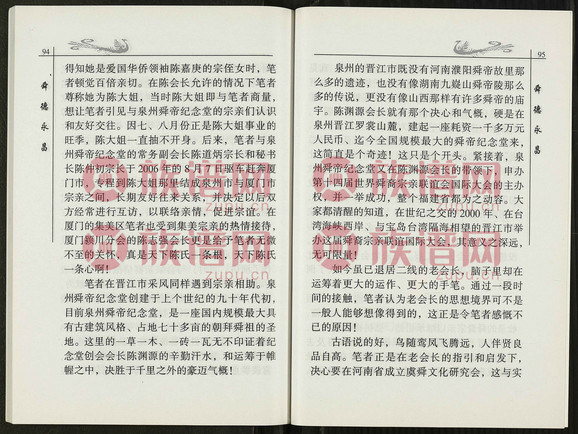 94
舜德永昌
得知她是爱国华侨领袖陈嘉庚的宗侄女时，笔
者顿觉百倍亲切。在陈会长允许的情况下笔者
尊称她为陈大姐，当时陈大姐即与笔者商量，
想让笔者引见与泉州舜帝纪念堂的宗亲们认识
和友好交往。因七、八月份正是陈大姐事业的
旺季，陈大姐一直抽不开身。后来，笔者与泉
州舜帝纪念堂的常务副会长陈道炳宗长和秘书
长陈伟初宗长于2006年的8月17日驱车赶奔厦
门市，专程到陈大姐那里结成泉州市与厦门市
宗亲之间，长期友好往来关系，并决定以后双
方经常进行互访，以联络亲情，促进宗谊。在
厦门的集美区笔者也受到集美宗亲的热情接待，
厦门颍川分会的陈志强会长更是给予笔者无微
不至的关怀，真是天下陈氏一条根，天下陈氏
一条心啊！
笔者在晋江市采风同样遇到宗亲相助。泉
州舜帝纪念堂创建于上个世纪的九十年代初，
目前泉州舜帝纪念堂，是一座国内规模最大具
有古建筑风格、占地七十多亩的朝拜舜祖的圣
地。这里的一草一木、一砖一瓦无不印证着纪
念堂创会会长陈渊源的辛勤汗水，和运筹于帷
幄之中，决胜于千里之外的豪迈气概！
95
舜德永昌
泉州的晋江市既没有河南濮阳舜帝故里那
么多的遗迹，也没有像湖南九嶷山舜帝陵那么
多的传说，更没有像山西那样有许多舜帝的庙
宇。陈渊源会长就有那个决心和气概，硬是在
泉州晋江罗裳山麓，建起一座耗资一千多万元
人民币、迄今全国规模最大的舜帝纪念堂来，
这简直是个奇迹！这只是个开头。紧接着，泉
州舜帝纪念堂又在陈渊源会长的带领下，申办
第十四届世界舜裔宗亲联谊会国际大会的主办
权，并一举成功，整个福建省都为之震动。大
家都清醒的知道，在世纪之交的2000年、在台
湾海峡西岸、与宝岛台湾隔海相望的晋江市举
办这届舜裔宗亲联谊国际大会，其意义之深远，
无可限量！
如今虽已退居二线的老会长，脑子里却在
运筹着更大的运作、更大的手笔。通过一段时
间的接触，笔者认为老会长的思想境界可不是
一般人能够想像得到的，这正是令笔者感慨不
已的原因！
古语说的好，鸟随鸾凤飞腾远，人伴贤良
品自高。笔者正是在老会长的指引和启发下，
决心要在河南省成立虞舜文化研究会，这与实
族谱网
zupu.cn
族谱网
zupu.cn